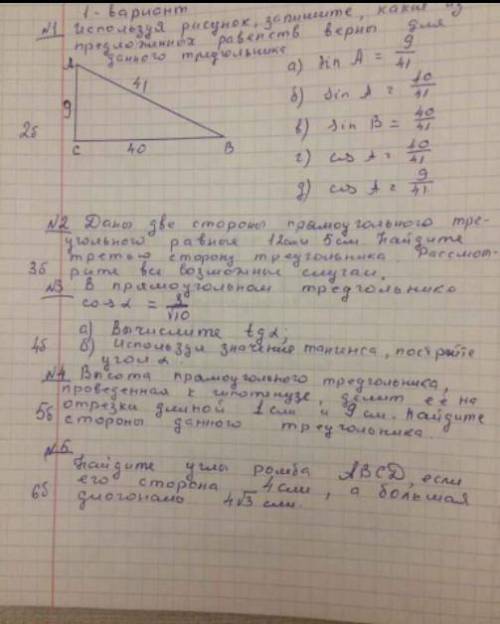 1 - вариант
№1 Используя рисунок, запишите, какие из
предложенных равенств верны для
данного треугольника
A
41
9
C
40
B
2б
а) sin A = 9/41
б) sin A = 40/41
в) sin B = 40/41
г) cos A = 40/41
д) cos A = 9/41
№2 Даны две стороны прямоугольного тре-
угольного равные 12см и 5см. Найдите
третью сторону треугольника Рассмот-
3б рите все возможные случаи.
№3 В прямоугольном треугольнике
cos α = 3/√10
а) Вычислите tg α;
4б б) Используя значение тангенса, постройте
угол α.
№4 Высота прямоугольного треугольника,
проведенная к гипотенузе, делит ее на
5б отрезки длиной 1 см и 9 см. Найдите
стороны данного треугольника.
№5
Найдите углы ромба ABCD, если
6б его сторона 4 см, а большая
диогональ 4√3 см.